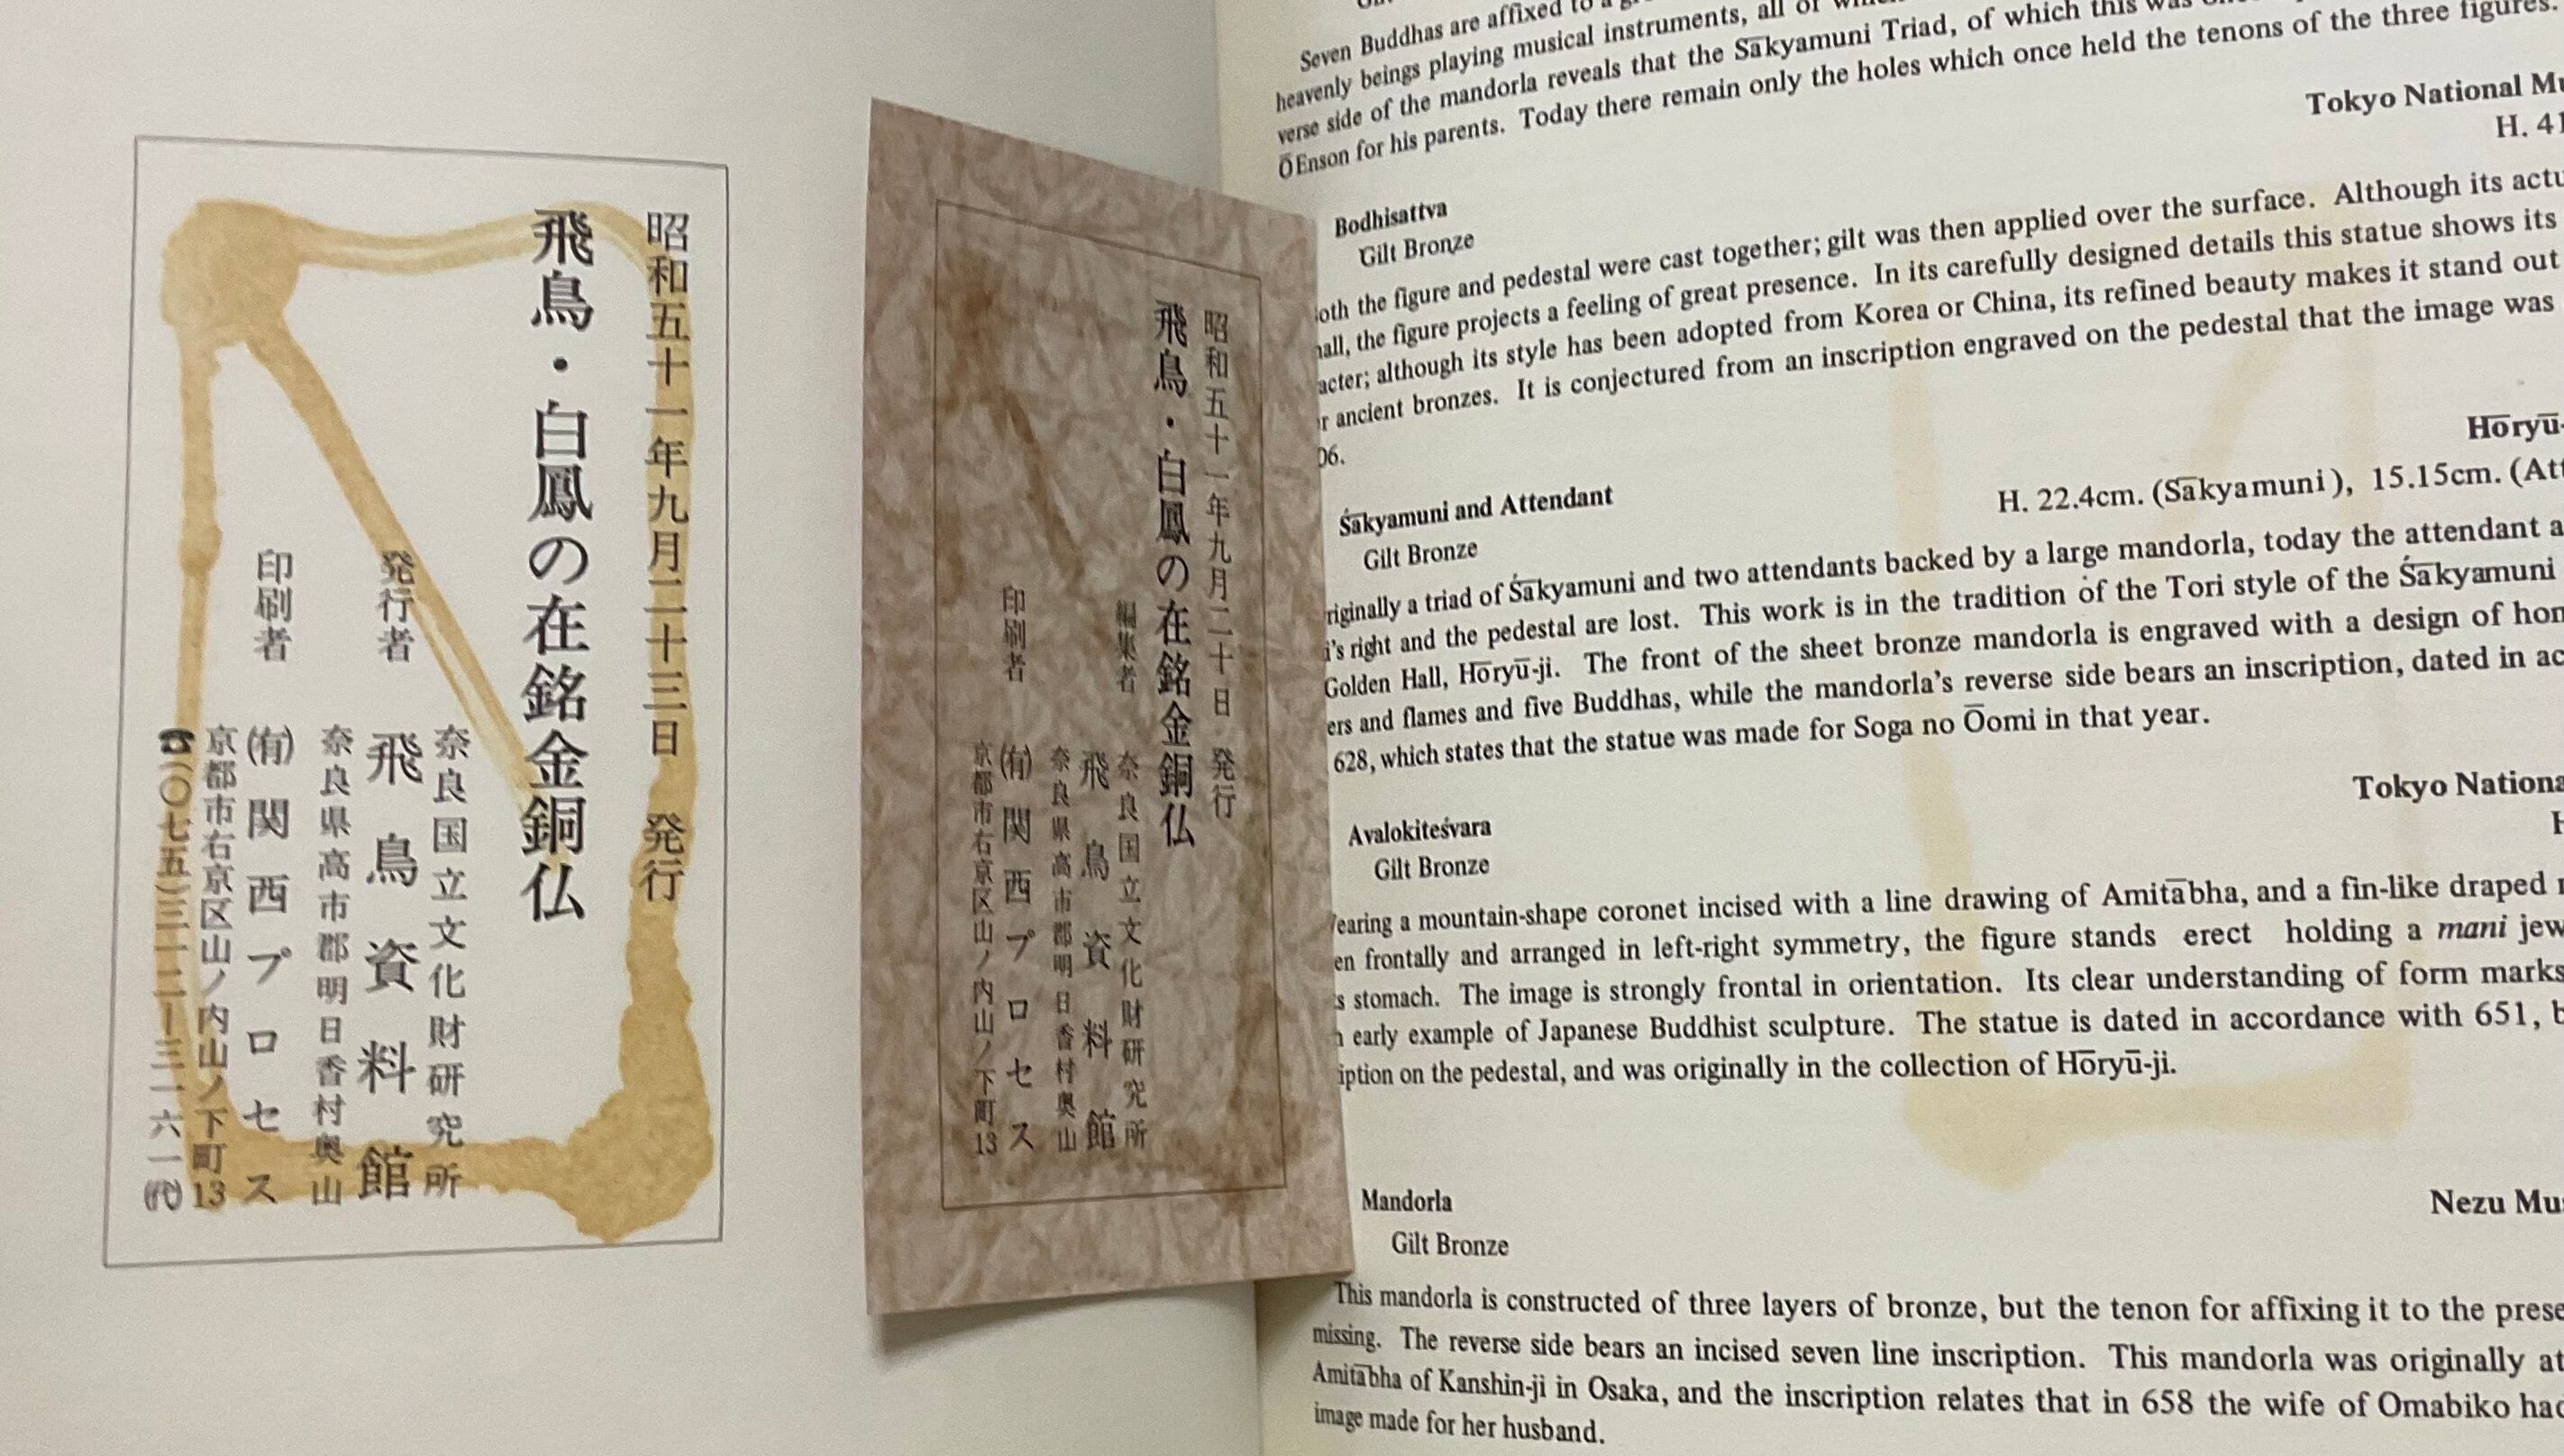 昭和五十一年九月二十三日 発行
飛鳥・白鳳の在銘金銅仏
奈良国立文化財研究所
発行者 飛鳥資料館
奈良県高市郡明日香村奥山
印刷者 (有)関西プロセス
京都市右京区山ノ内山ノ下町13
☎(〇七五)三一二―三一六一(代)
昭和五十一年九月二十日 発行
飛鳥・白鳳の在銘金銅仏
奈良国立文化財研究所
編集者 飛鳥資料館
奈良県高市郡明日香村奥山
印刷者 (有)関西プロセス
京都市右京区山ノ内山ノ下町13
Seven Buddhas are affixed to a
heavenly beings playing musical instruments, all of
verse side of the mandorla reveals that the Śākyamuni Triad, of which this was
ŌEnson for his parents. Today there remain only the holes which once held the tenons of the three figures.
Tokyo National
H. 41
Bodhisattva
Gilt Bronze
the figure and pedestal were cast together; gilt was then applied over the surface. Although its
the figure projects a feeling of great presence. In its carefully designed details this statue shows its
although its style has been adopted from Korea or China, its refined beauty makes it stand out
ancient bronzes. It is conjectured from an inscription engraved on the pedestal that the image was
06.
Hōryū-
Śākyamuni and Attendant
H. 22.4cm. (Śākyamuni), 15.15cm.
Gilt Bronze
a triad of Śākyamuni and two attendants backed by a large mandorla, today the attendant
right and the pedestal are lost. This work is in the tradition of the Tori style of the Śākyamuni
Golden Hall, Hōryū-ji. The front of the sheet bronze mandorla is engraved with a design of
ers and flames and five Buddhas, while the mandorla's reverse side bears an inscription, dated in
628, which states that the statue was made for Soga no Ōomi in that year.
Tokyo
H
Avalokiteśvara
Gilt Bronze
a mountain-shape coronet incised with a line drawing of Amitābha, and a fin-like draped
en frontally and arranged in left-right symmetry, the figure stands erect holding a mani
stomach. The image is strongly frontal in orientation. Its clear understanding of form marks
early example of Japanese Buddhist sculpture. The statue is dated in accordance with 651,
iption on the pedestal, and was originally in the collection of Hōryū-ji.
Mandorla
Nezu
Gilt Bronze
This mandorla is constructed of three layers of bronze, but the tenon for affixing it to the
missing. The reverse side bears an incised seven line inscription. This mandorla was originally
Amitābha of Kanshin-ji in Osaka, and the inscription relates that in 658 the wife of Omabiko
image made for her husband.